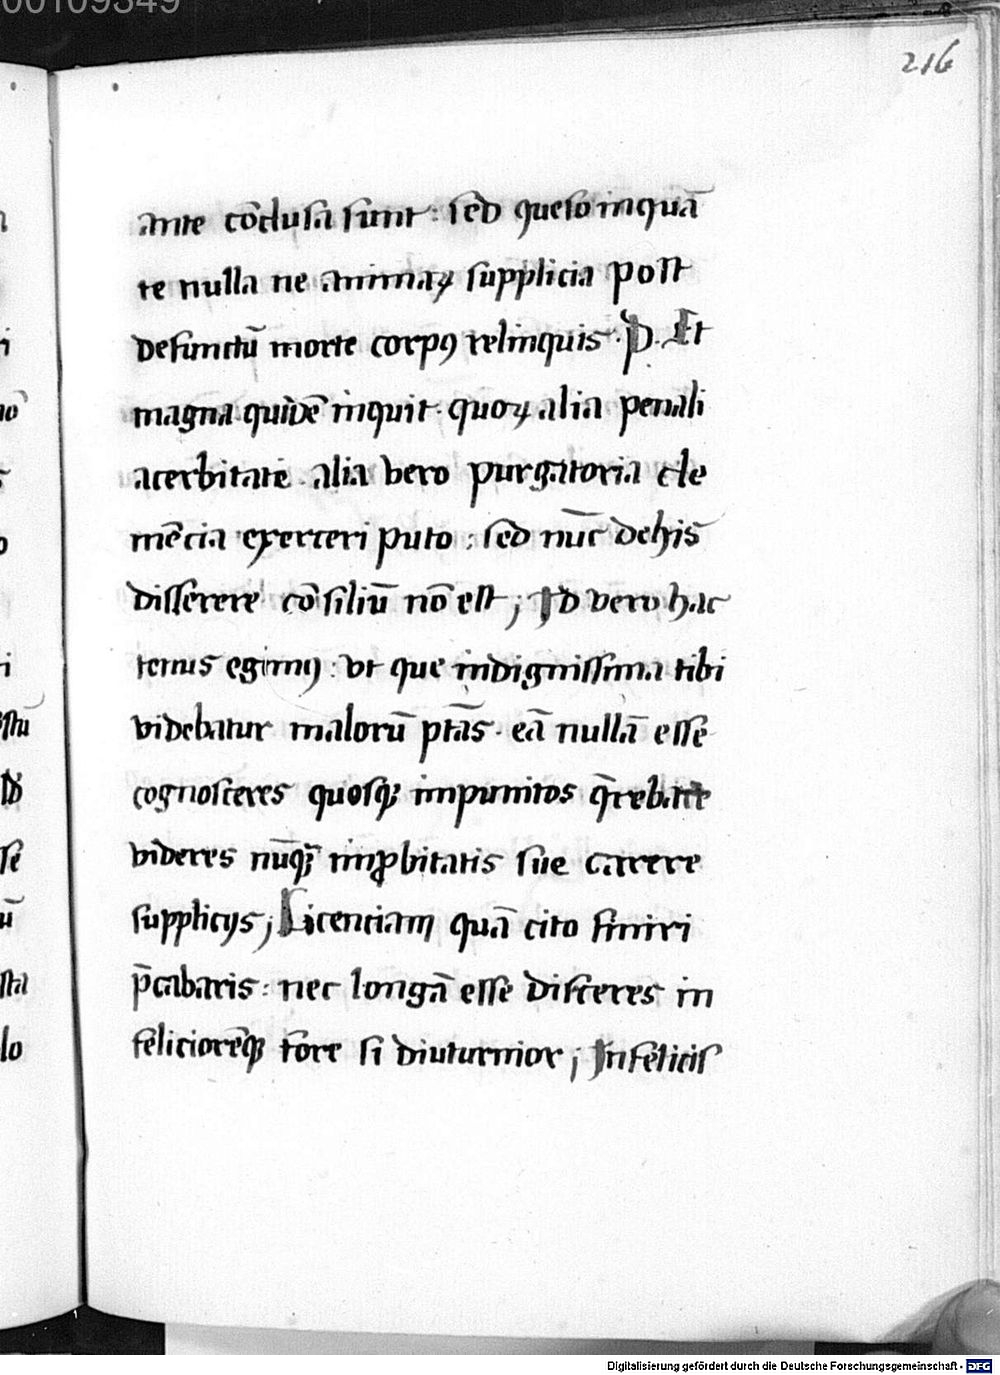 00109349
216
ante cōclusa sunt : sed queso inquā
te nulla ne animaꝝ supplicia post
defunctū morte corpꝰ relinquis · P. Et
magna quidē inquit · quoꝝ alia penali
acerbitate · alia vero purgatoria cle
mēcia exerceri puto ; sed nūc de his
disserere cōsiliū nō est ; Id vero hac
tenus egimꝰ : vt que indignissima tibi
videbatur malorū ptās · eā nullā esse
cognosceres quosqꝫ impunitos q̄rebare
videres nūqꝫ̄ imꝓbitatis sue carere
supplicijs ; Licenciam quā cito finiri
p̄cabaris : nec longā esse disceres in
feliciorēqꝫ fore si diuturnior ; Infelicis
Digitalisierung gefördert durch die Deutsche Forschungsgemeinschaft - DFG